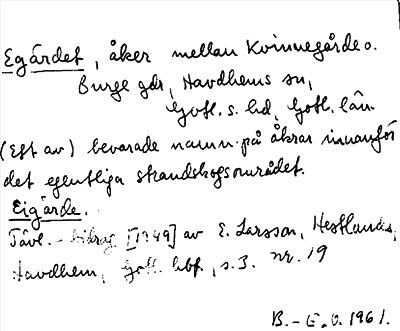 Egärdet, åker mellan Kvinnegårde o.
Burge gdr, Havdhems sn,
Gotl. s. hd, Gotl. län.
(Eft av) bevarade namn på åkrar innanför
det egentliga strandskogsområdet.
Eigärde.
Tävl.-bidrag [1949] av E. Larsson,
Havdhem, Gotl. hbf, s. 3. nr. 19
B.-E. O. 1961.